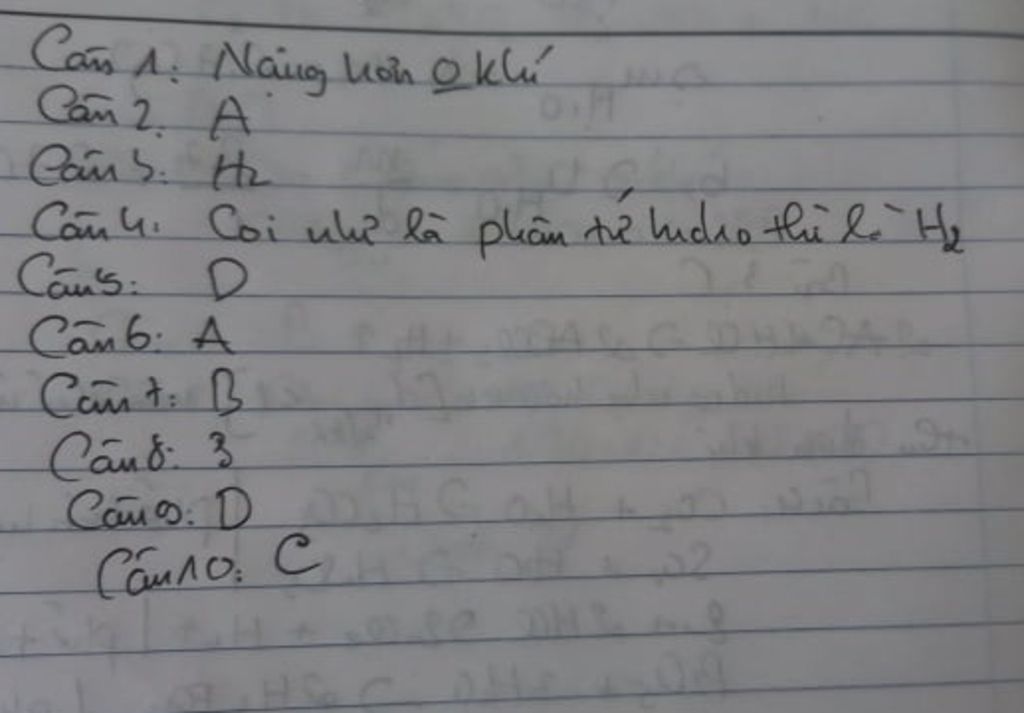 Câu 1: Nặng hơn O khí
Câu 2. A
Câu 3: H2
Câu 4: Coi như là phân tử hidro thì là H2
Câu 5: D
Câu 6: A
Câu 7: B
Câu 8: 3
Câu 9: D
Câu 10: C